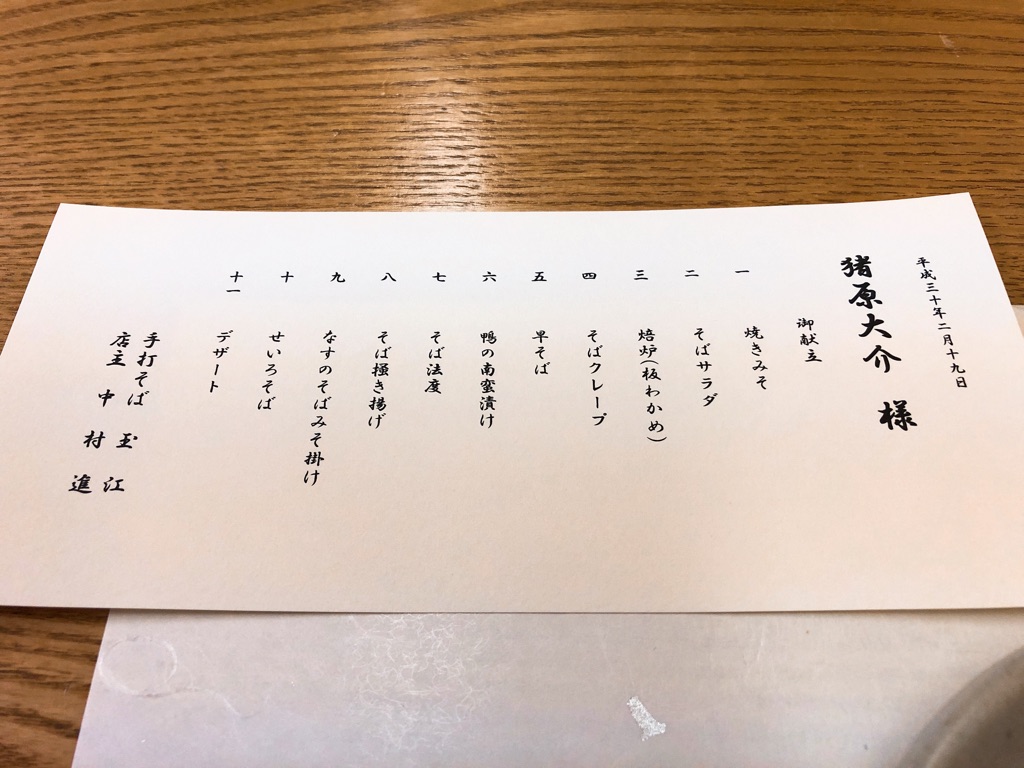 平成三十年二月十九日
猪原大介 様
御献立
一 焼きみそ
二 そばサラダ
三 焙炉(板わかめ)
四 そばクレープ
五 早そば
六 鴨の南蛮漬け
七 そば法度
八 そば掻き揚げ
九 なすのそばみそ掛け
十 せいろそば
十一 デザート
手打そば 玉江
店主 中村 進